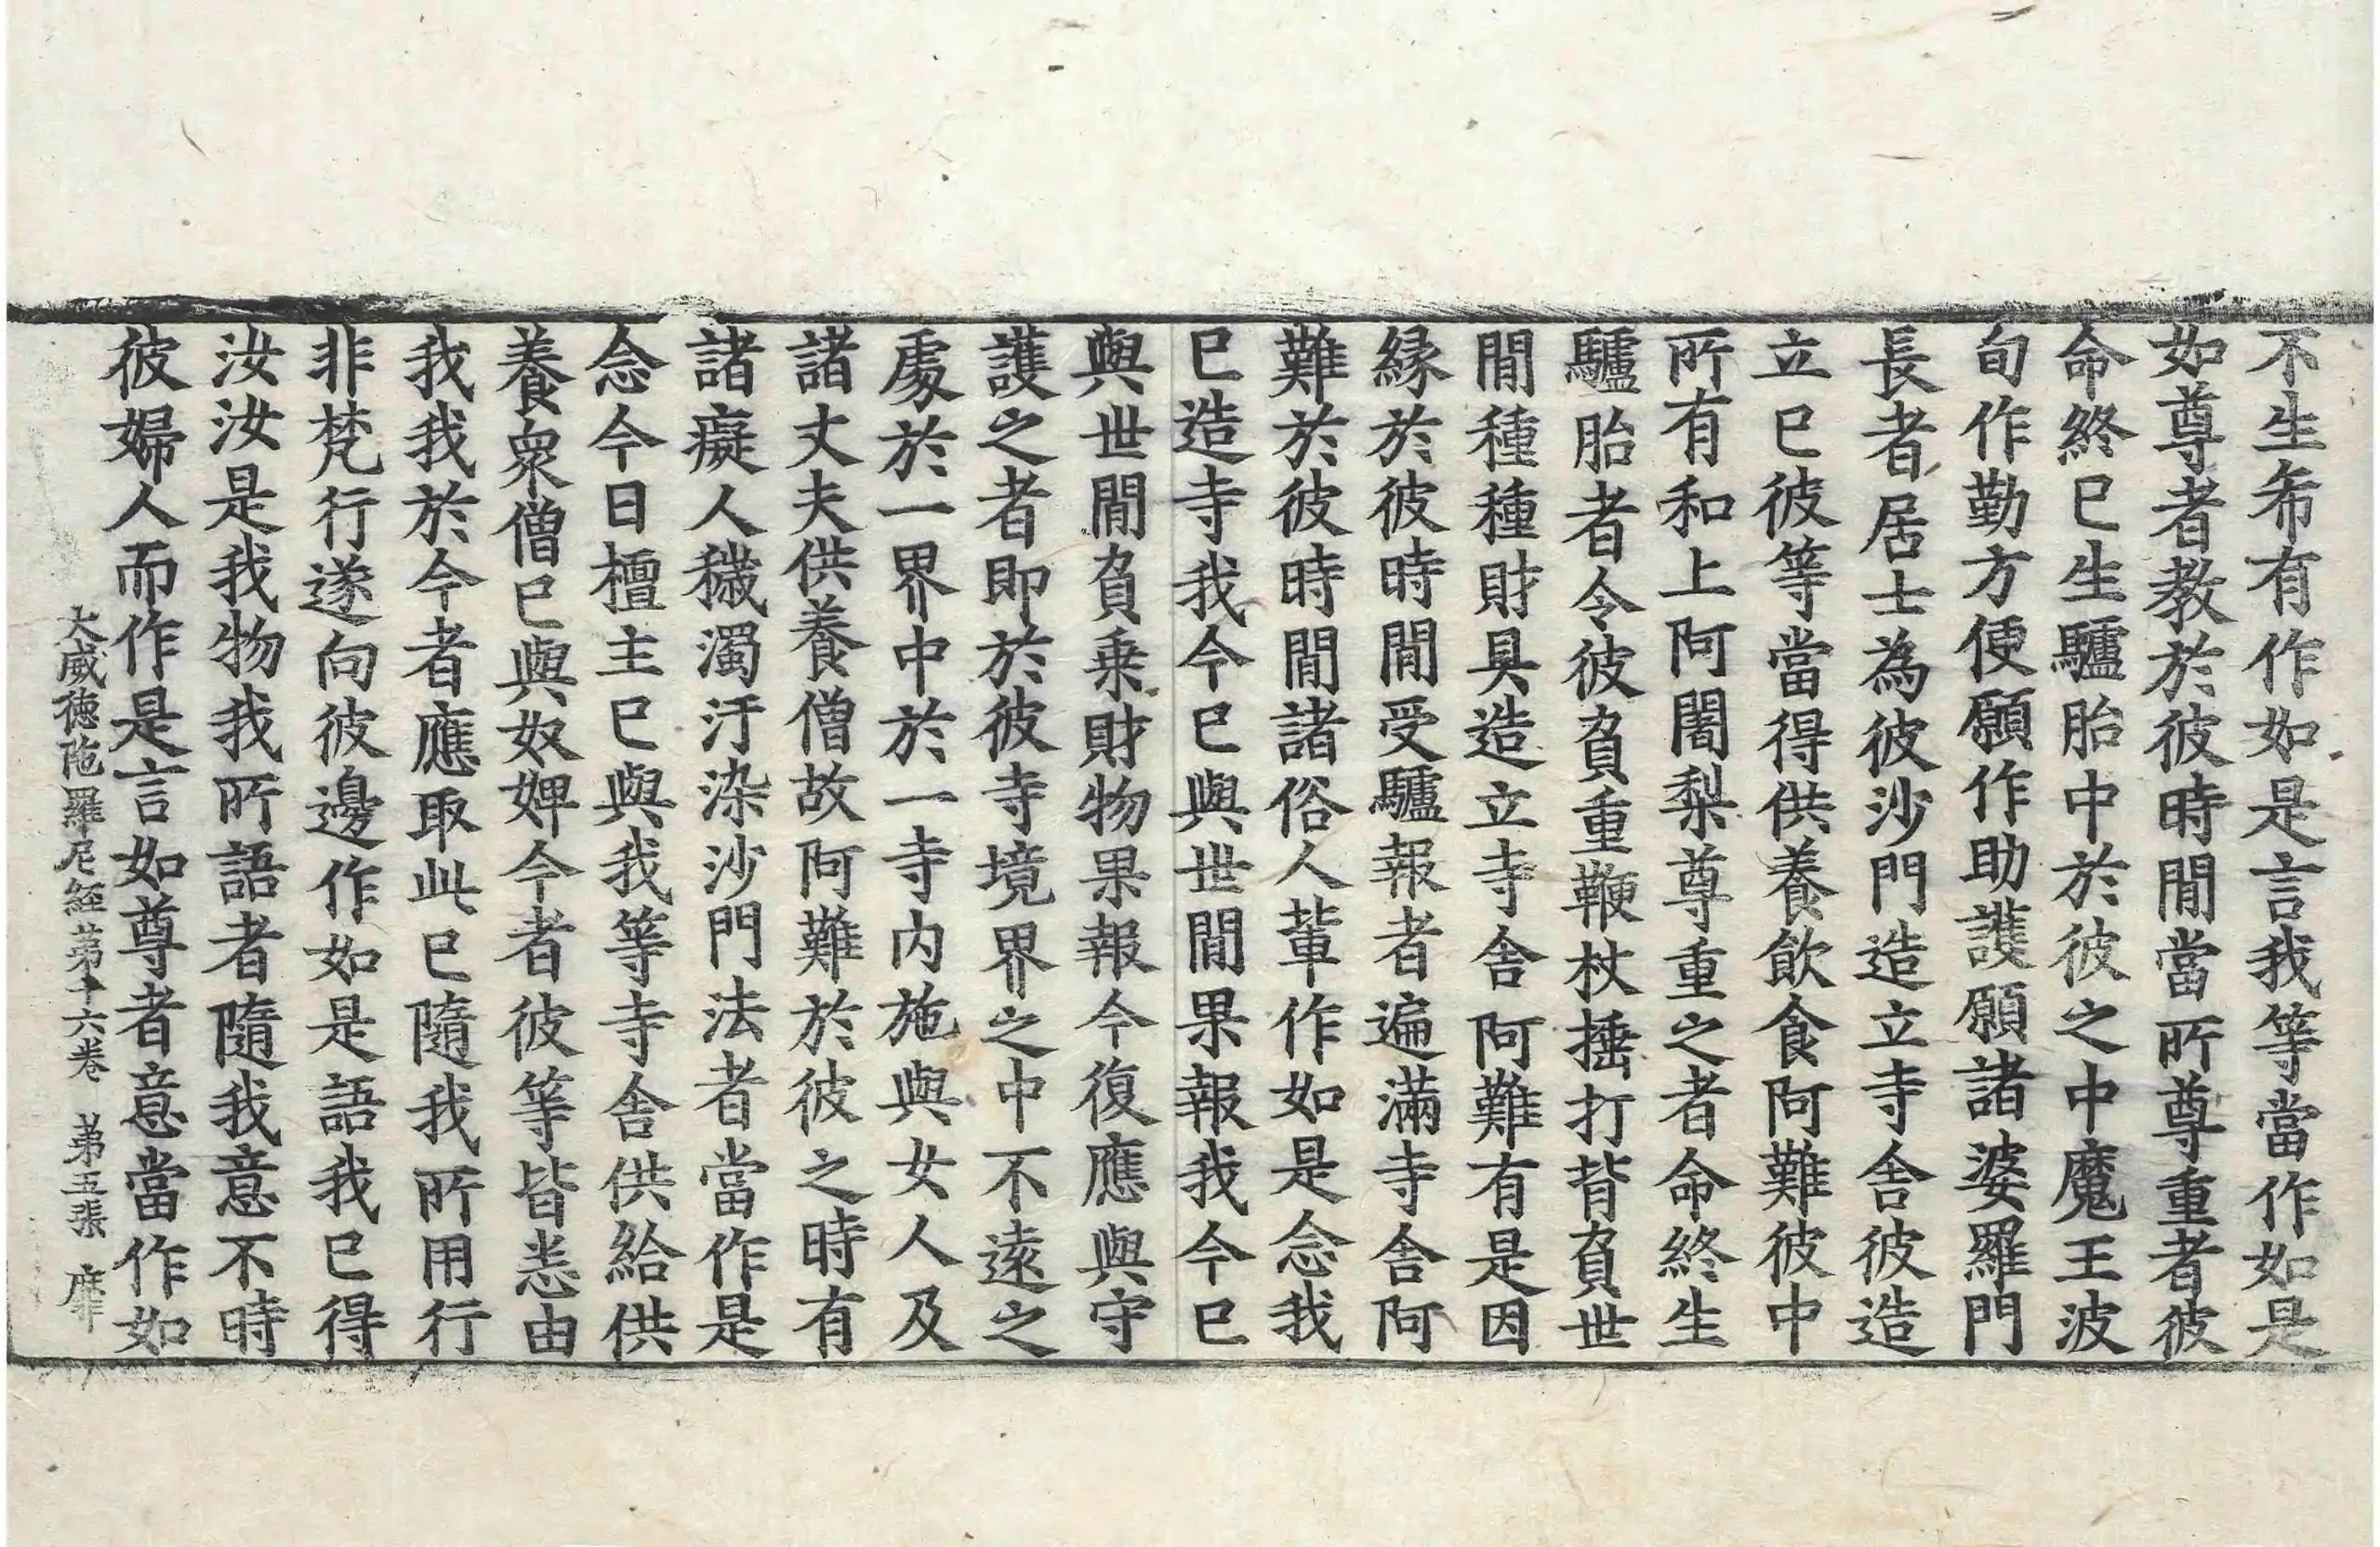 不生希有作如是言我等當作如是
如尊者教於彼時閒當所尊重者彼
命終已生驢胎中於彼之中魔王波
旬作勤方便願作助護願諸婆羅門
長者居士為彼沙門造立寺舍彼造
立已彼等當得供養飲食阿難彼中
所有和上阿闍梨尊重之者命終生
驢胎者令彼負重鞭杖捶打背負世
閒種種財具造立寺舍阿難有是因
緣於彼時閒受驢報者遍滿寺舍阿
難於彼時閒諸俗人輩作如是念我
已造寺我今已與世閒果報我今已
與世閒負乗財物果報今復應與守
護之者即於彼寺境界之中不遠之
處於一界中於一寺内施與女人及
諸丈夫供養僧故阿難於彼之時有
諸癡人穢濁汙染沙門法者當作是
念今日檀主已與我等寺舍供給供
養衆僧已與奴婢今者彼等皆悉由
我我於今者應取此已隨我所用行
非梵行遂向彼邊作如是語我已得
汝汝是我物我所語者隨我意不時
彼婦人而作是言如尊者意當作如
大威德陁羅尼經第十六卷 第五張 靡